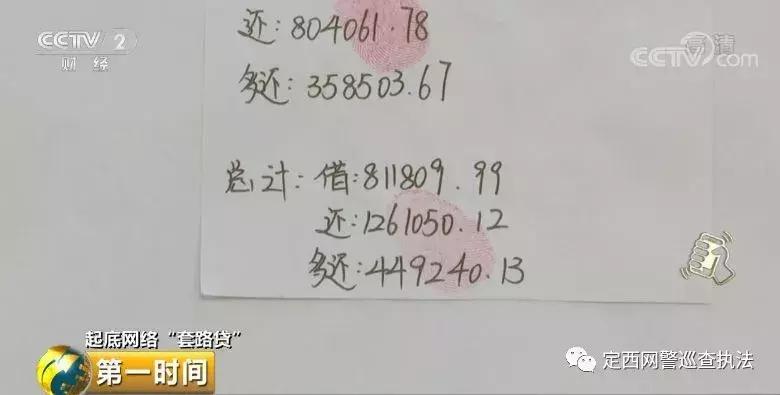 CCTV 2
财经
高清
CCTV.com
还:804061.78
多还:358503.67
总计:借:811809.99
还:1261050.12
多还:449240.13
起底网络“套路贷”
第一时间
定西网警巡查执法